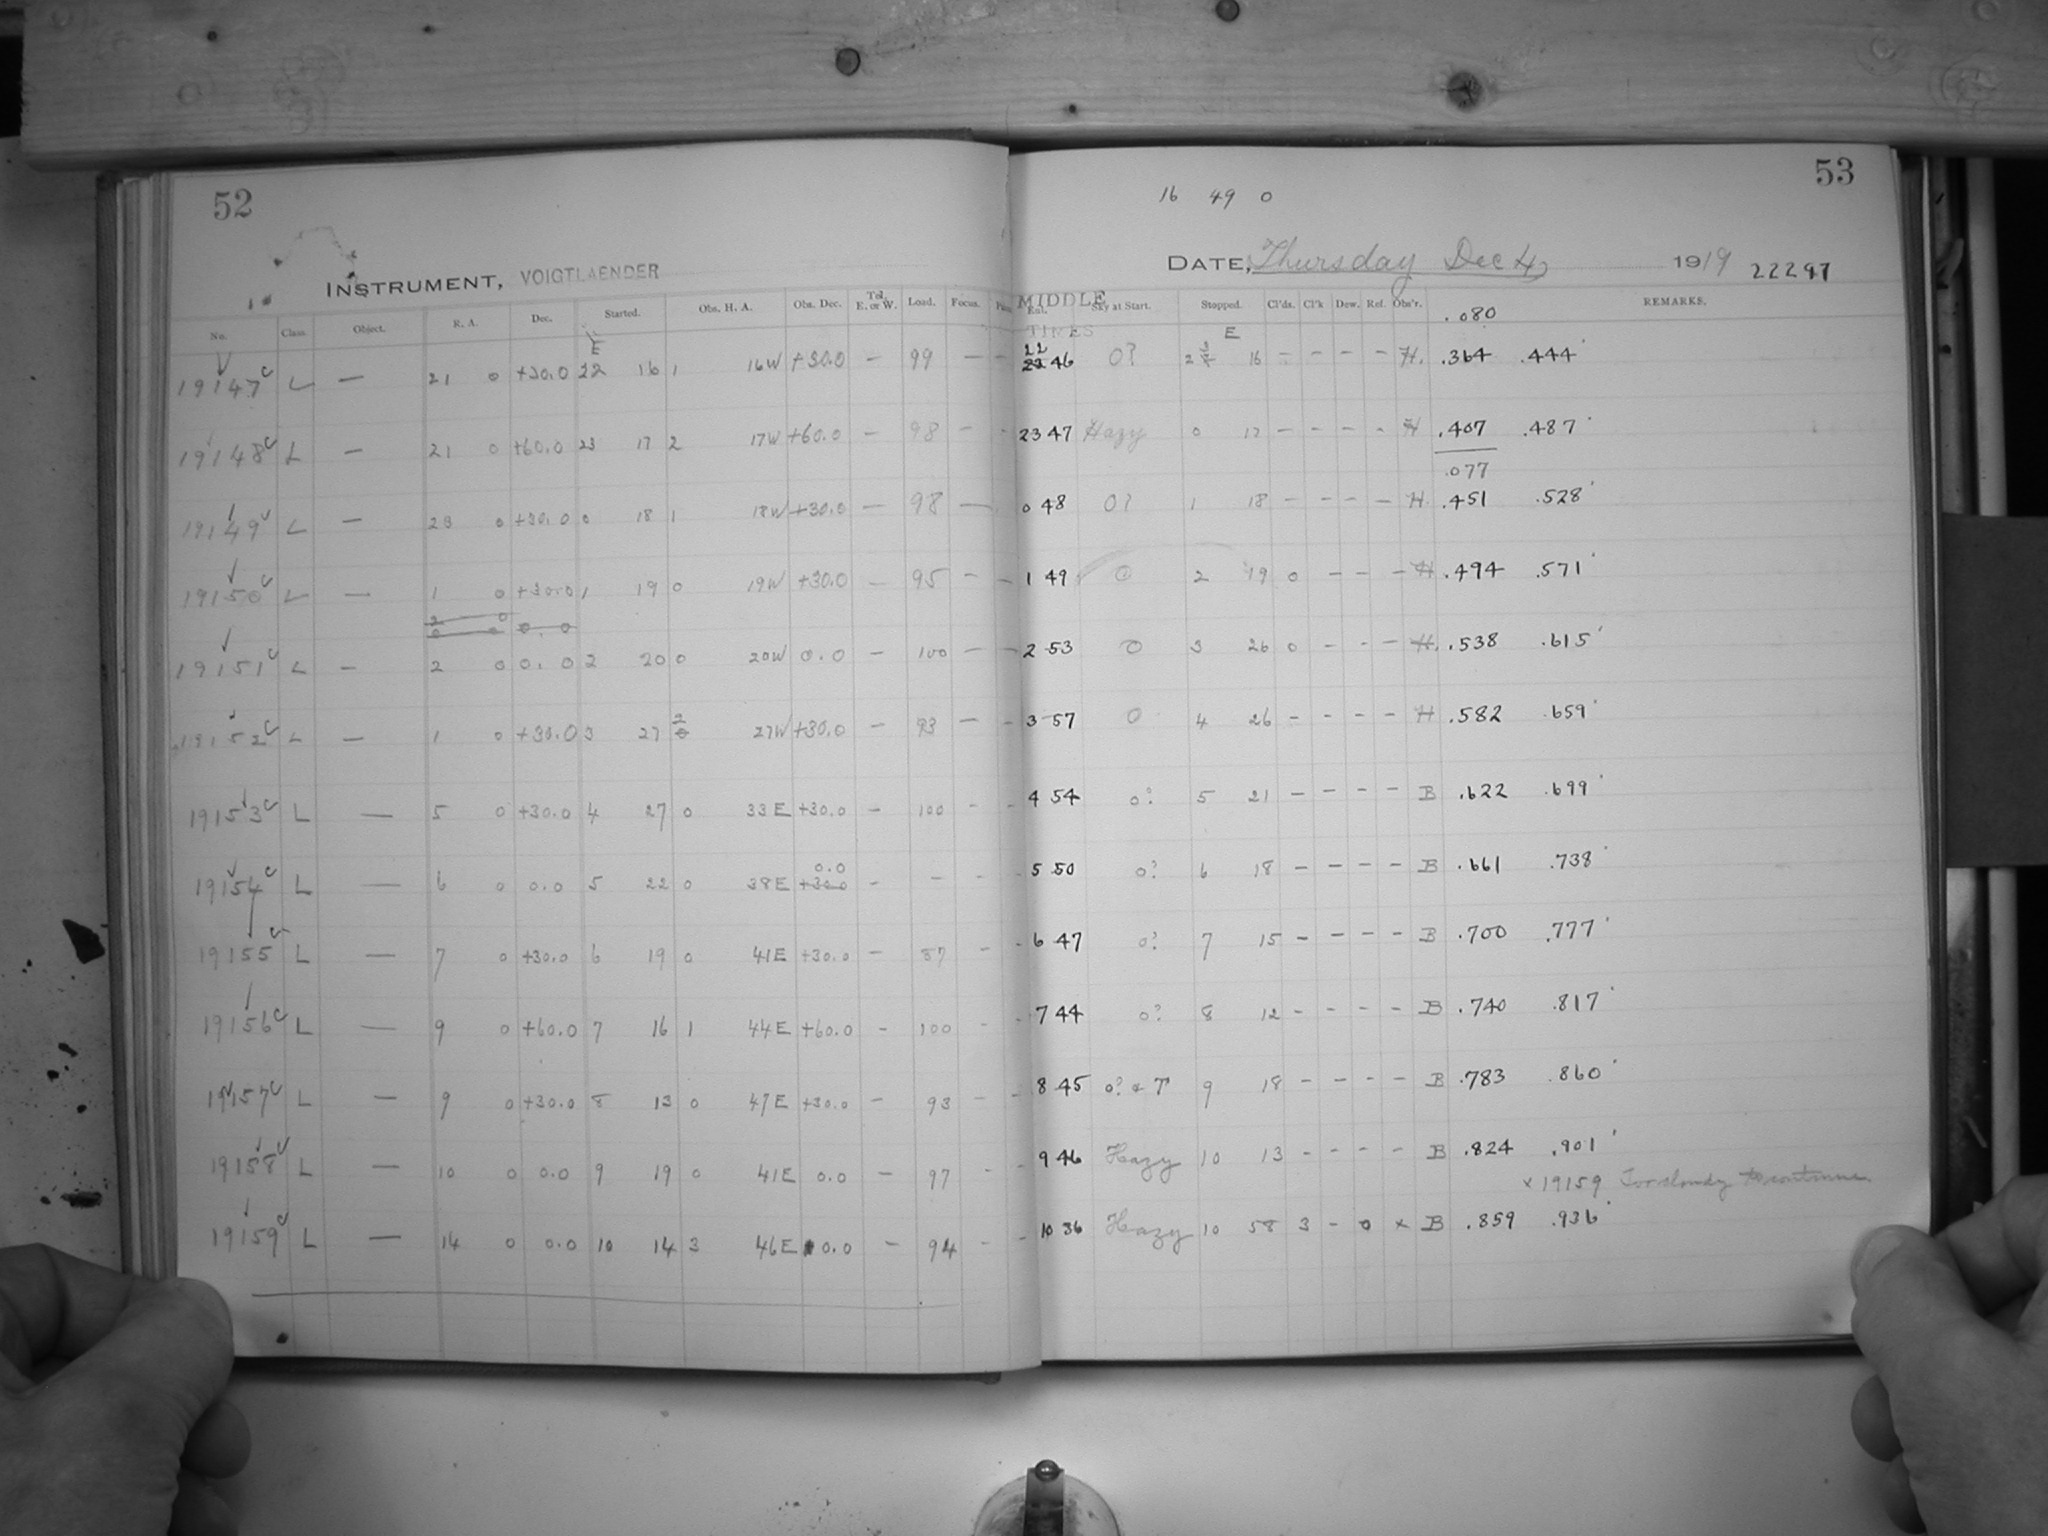 52
53
16 49 0
INSTRUMENT, VOIGTLAENDER
DATE, Thursday Dec 4, 1919 22297
No. Class. Object. R. A. Dec. Started. Obs. H. A. Obs. Dec. Tel. E. or W. Load. Focus. MIDDLE TIMES Sky at Start. Stopped. Cl'ds. Cl'k Dew. Ref. Obs'r. REMARKS.
E E .080
19147 c L — 21 0 +30.0 22 16 1 16W +30.0 — 99 — - 22 46 0? 23 16 - - - - H. .364 .444
19148 c L — 21 0 +60.0 23 17 2 17W +60.0 — 98 - - 23 47 Hazy 0 17 - - - - H .407 .487
.077
19149 c L — 23 0 +30.0 0 18 1 18W +30.0 — 98 — 0 48 0? 1 18 - - - - H. .451 .528
19150 c L — 1 0 +30.0 1 19 0 19W +30.0 — 95 - - 1 49 0 2 19 0 - - - H. .494 .571
19151 c L - 2 0 0.0 2 20 0 20W 0.0 - 100 - - 2 53 0 3 26 0 - - - H. .538 .615
19152 c L — 1 0 +30.0 3 27 2 27W +30.0 - 93 - - 3 57 0 4 26 - - - - H .582 .659
19153 c L — 5 0 +30.0 4 27 0 33E +30.0 - 100 - - 4 54 0? 5 21 - - - - B .622 .699
0.0
19154 c L — 6 0 0.0 5 22 0 38E +30.0 - - - - 5 50 0? 6 18 - - - - B .661 .738
19155 c L — 7 0 +30.0 6 19 0 41E +30.0 - 87 - - 6 47 0? 7 15 - - - - B .700 .777
19156 c L — 9 0 +60.0 7 16 1 44E +60.0 - 100 - - 7 44 0? 8 12 - - - - B .740 .817
19157 c L — 9 0 +30.0 8 13 0 47E +30.0 - 93 - - 8 45 0? & T 9 18 - - - - B .783 .860
19158 c L — 10 0 0.0 9 19 0 41E 0.0 - 97 - - 9 46 Hazy 10 13 - - - - B .824 .901
x 19159 Too cloudy to continue.
19159 c L — 14 0 0.0 10 14 3 46E 0.0 - 94 - - 10 36 Hazy 10 58 3 - 0 x B .859 .936